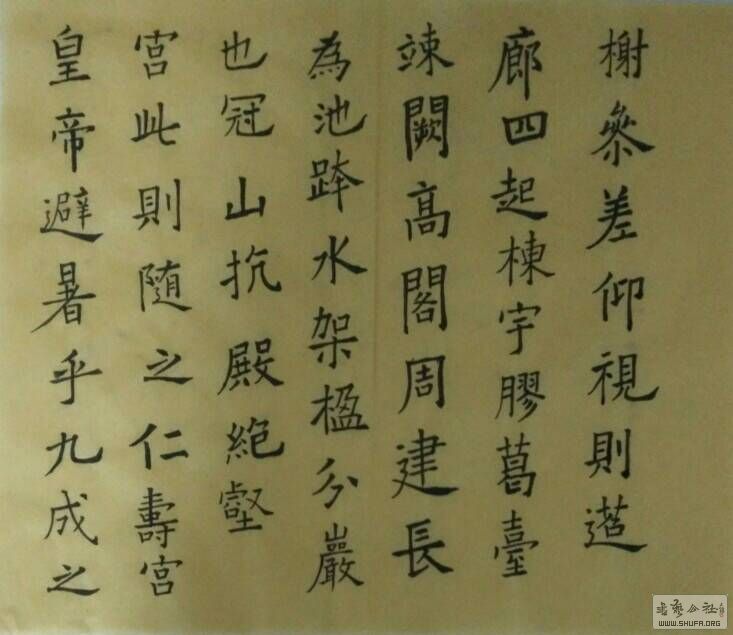 皇帝避暑乎九成之
宮此則随之仁壽宮
也冠山抗殿絶壑
為池跨水架楹分巖
竦闕髙閣周建長
廊四起棟宇膠葛臺
榭參差仰視則迢
書藝公社
WWW.SHUFA.ORG